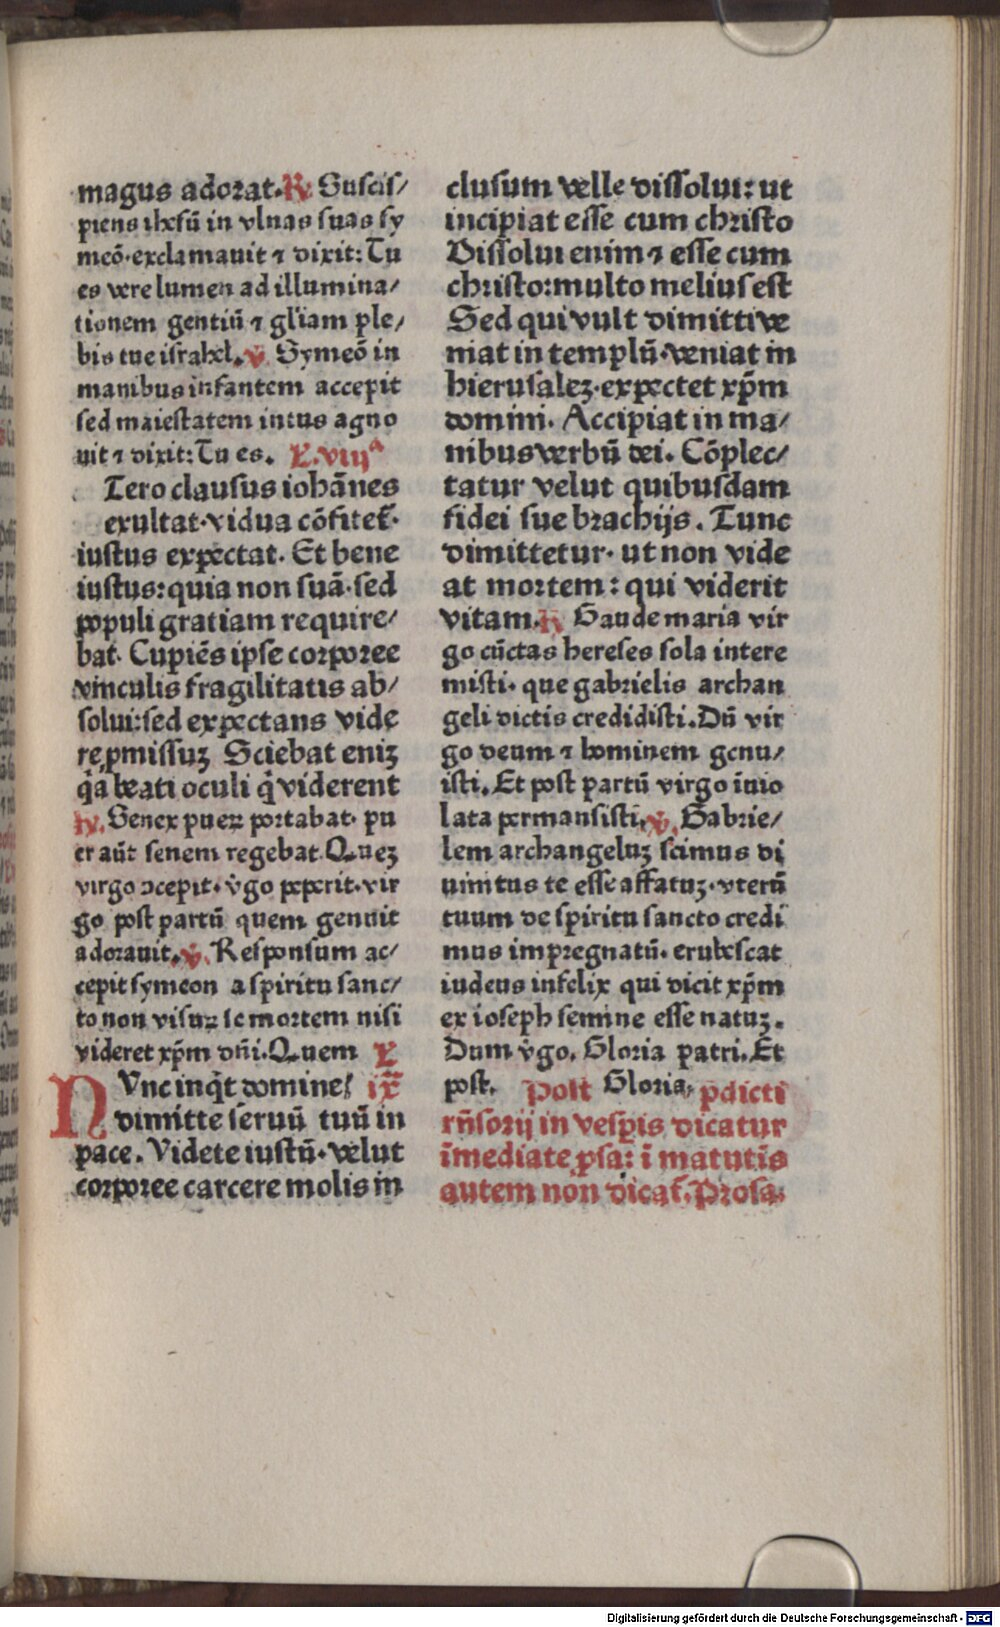 magus adorat. ℟ Suscis/
piens ihesū in vlnas suas sy
meō·exclamauit ⁊ dixit: Tu
es vere lumen ad illumina/
tionem gentiū ⁊ gl'iam ple/
bis tue israhel. ℣ Symeō in
manibus infantem accepit
sed maiestatem intus agno
uit ⁊ dixit: Tu es. L. viijª
Utero clausus iohānes
exultat·vidua cōfitet᷑·
iustus expectat. Et bene
iustus: quia non suā·sed
populi gratiam require/
bat. Cupiēs ipse corporee
vinculis fragilitatis ab/
solui: sed expectans vide
re ꝓmissuꝫ Sciebat eniꝫ
q̄a beati oculi q̄ viderent
℟. Senex puerꝫ portabat· pu
er aūt senem regebat. Queꝫ
virgo ↄcepit· v̄go peperit·vir
go post partū quem genuit
adorauit. ℣. Responsum ac/
cepit symeon a spiritu sanc/
to non visurꝫ se mortem nisi
videret xp̄m dn̄i. Quem L
NVnc inq̄t domine ix
dimitte seruū tuū in
pace. Videte iustū· velut
corporee carcere molis in
clusum velle dissolui: ut
incipiat esse cum christo
Dissolui enim ⁊ esse cum
christo: multo melius est
Sed qui vult dimitti ve
niat in templū·veniat in
hierusaleꝫ·expectet xp̄m
domini. Accipiat in ma/
nibus verbū dei. Cōplec/
tatur velut quibusdam
fidei sue brachijs. Tunc
dimittetur· ut non vide
at mortem: qui viderit
vitam. ℟ Gaude maria vir
go cūctas hereses sola intere
misti· que gabrielis archan
geli dictis credidisti. Dū vir
go deum ⁊ hominem genu/
isti. Et post partū virgo īuio
lata permansisti. ℣. Gabrie/
lem archangeluꝫ scimus di
uinitus te esse affatuꝫ·vterū
tuum de spiritu sancto credi
mus impregnatū· erubescat
iudeus infelix qui dicit xp̄m
ex ioseph semine esse natuꝫ.
Dum v̄go. Gloria patri. Et
post. Post Gloria, p̄dicti
rn̄sorij in vesꝑis dicatur
īmediate ꝓsa: ī matutīs
autem non dicat᷑. Prosa.
Digitalisierung gefördert durch die Deutsche Forschungsgemeinschaft - DFG